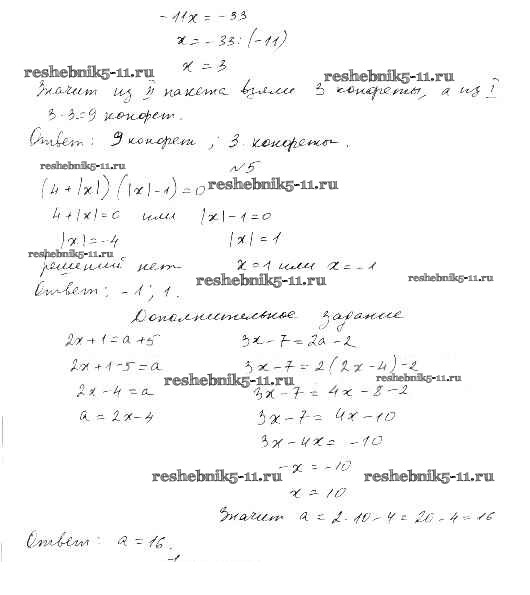 -11x = -33
x = -33 : (-11)
x = 3
reshebnik5-11.ru reshebnik5-11.ru
Значит из II пакета взяли 3 конфеты, а из I
3·3=9 конфет.
Ответ: 9 конфет ; 3 конфеты.
reshebnik5-11.ru №5
(4+|x|)(|x|-1)=0 reshebnik5-11.ru
4+|x|=0 или |x|-1=0
|x|=-4 |x|=1
reshebnik5-11.ru
решений нет x=1 или x=-1
reshebnik5-11.ru reshebnik5-11.ru
Ответ: -1; 1.
Дополнительное задание
2x+1=a+5 3x-7=2a-2
2x+1-5=a 3x-7=2(2x-4)-2
reshebnik5-11.ru reshebnik5-11.ru
2x-4=a 3x-7=4x-8-2
a=2x-4 3x-7=4x-10
3x-4x=-10
-x=-10
reshebnik5-11.ru reshebnik5-11.ru
x=10
Значит a=2·10-4=20-4=16
Ответ: a=16.